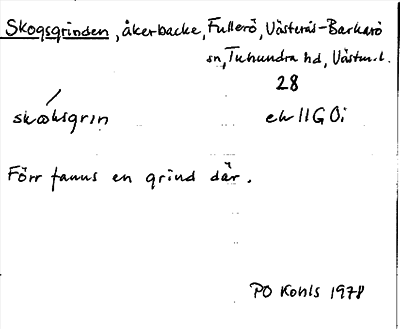 Skogsgrinden, åkerbacke, Fullerö, Västerås-Barkarö
sn, Tuhundra hd, Västm.l.
28
skoksgrin ek 11G0i
Förr fanns en grind där.
PO Kohls 1978